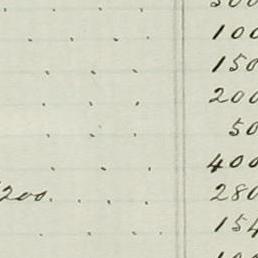 . . . 300
. . . 100
. . . 150
. . . 200
. . . 50
. . . 400
200. . . . 280
. . . 154
100